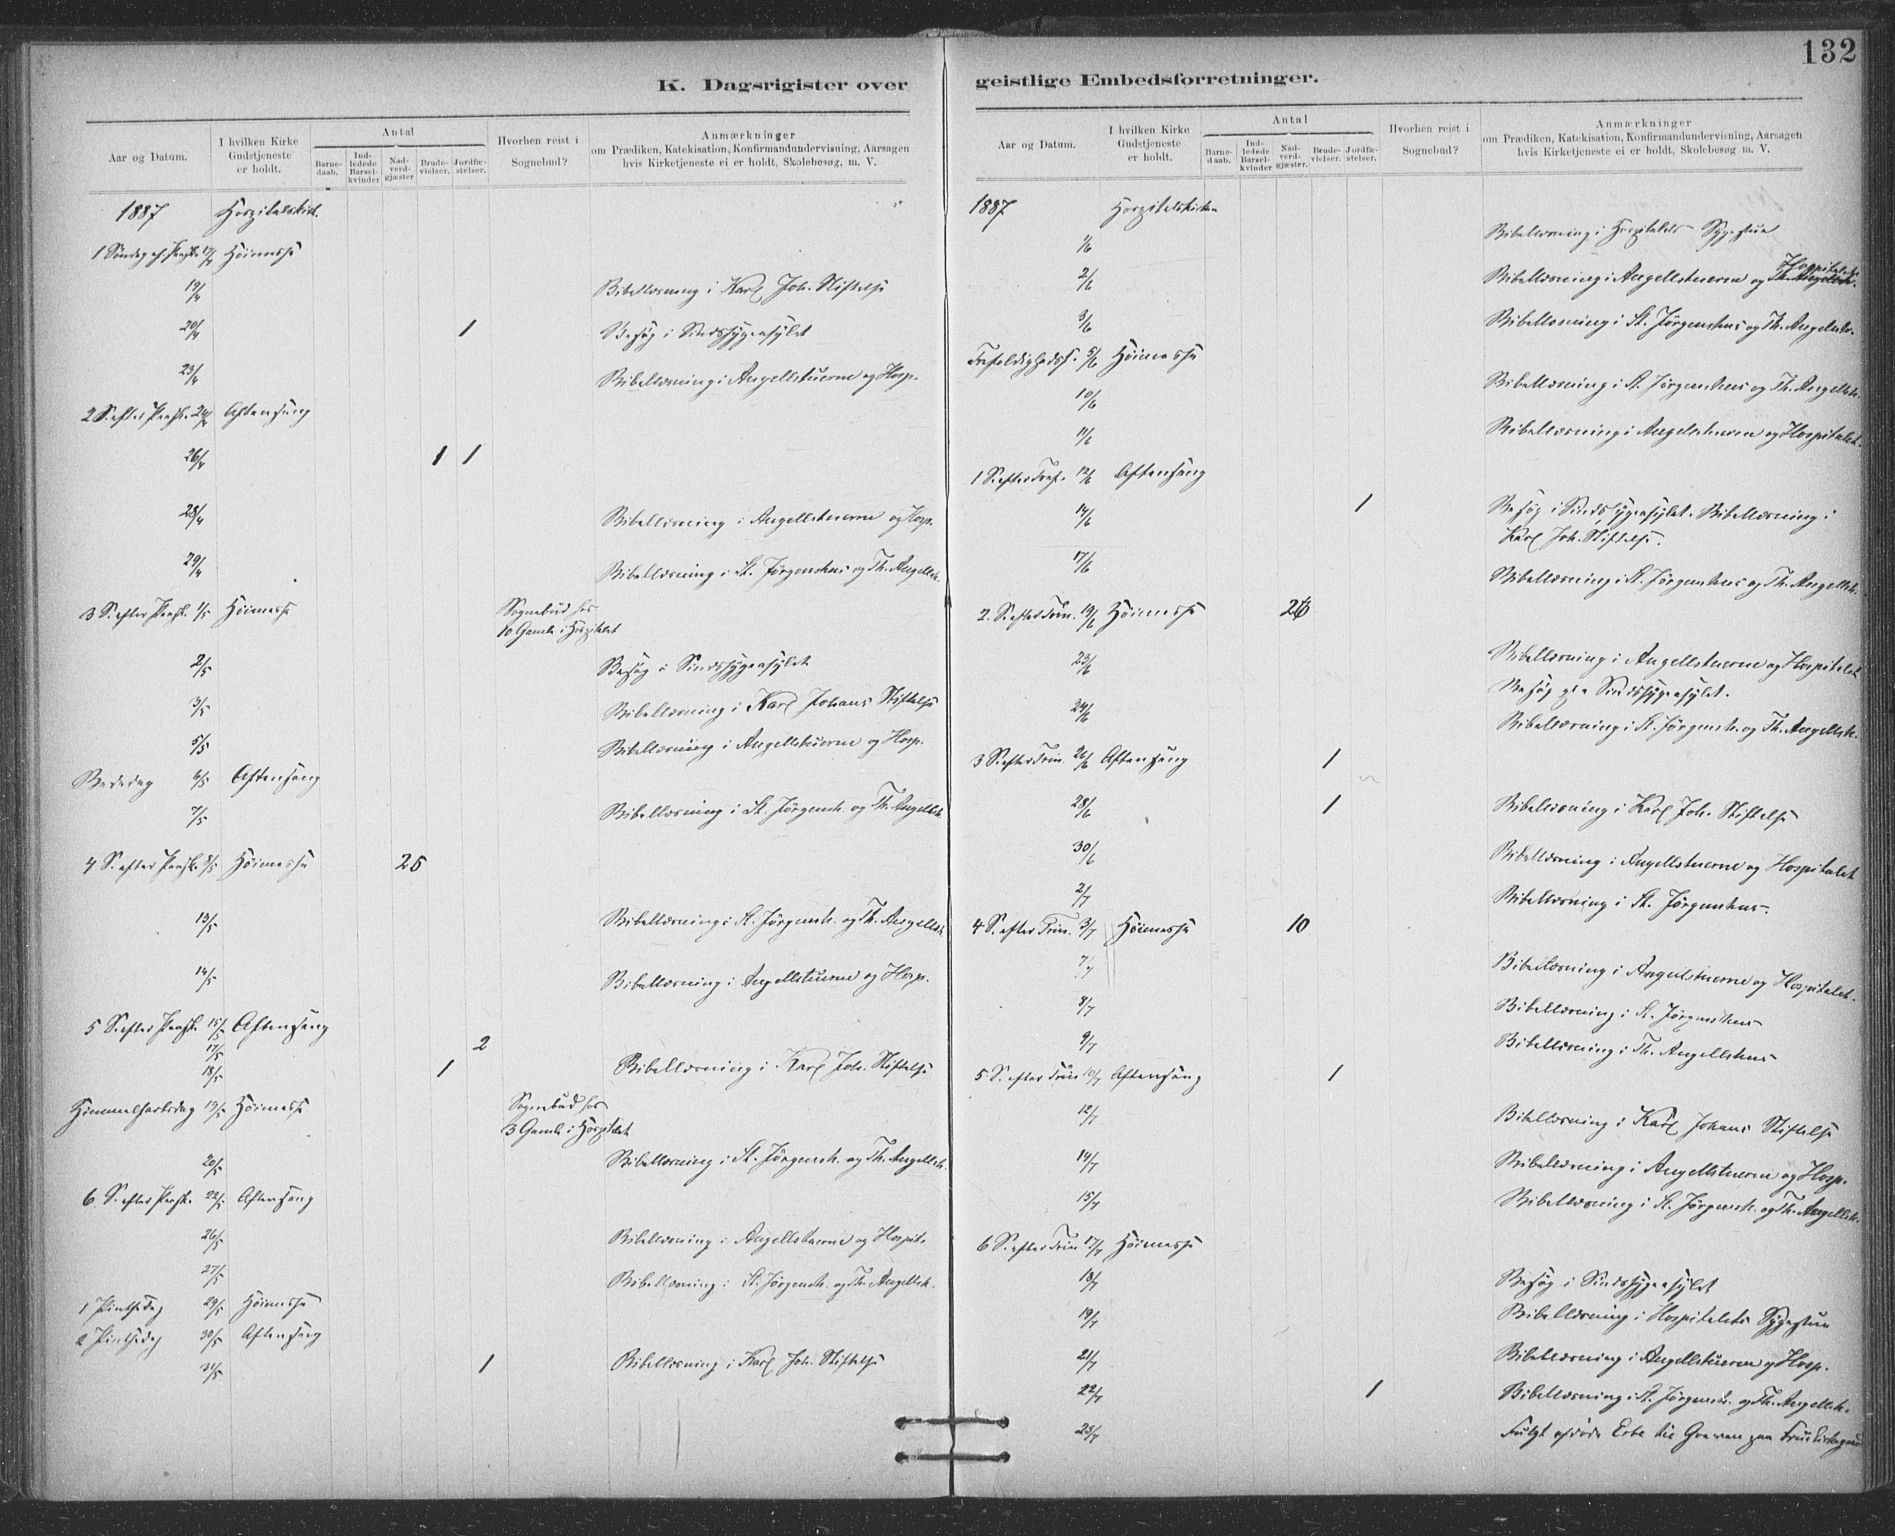 132
K. Dagsrigister over geistlige Embedsforretninger.
Aar og Datum. I hvilken Kirke Gudstjeneste er holdt. Antal Barnedaab. Indledede Barselkvinder Nadverdgjæster Brudevielser. Jordfæstelser. Hvorhen reist i Sognebud? Anmærkninger om Prædiken, Katekisation, Konfirmandundervisning, Aarsagen hvis Kirketjeneste ei er holdt, Skolebesøg, m. V.
1887 Hospitalskirk.
1 Søndag ef. Paaske 17/4 Høimesse
19/4 Bibellæsning i Karl Joh. Stiftelse
20/4 1 Besøg i Sindssygeasylet
23/4 Bibellæsning i Angellstuerne og Hosp.
2 S. efter Paask. 24/4 Aftensang
26/4 1 1
28/4 Bibellæsning i Angellstuerne og Hosp.
29/4 Bibellæsning i St. Jørgenshus og Th. Angellsh.
3 S. efter Paask. 1/5 Høimesse Sognebud hos
10 Gamle i Hospitalet
2/5 Besøg i Sindssygeasylet
3/5 Bibellæsning i Karl Johans Stiftelse
5/5 Bibellæsning i Angellstuerne og Hosp.
Bededag 6/5 Aftensang
7/5 Bibellæsning i St. Jørgensh. og Th. Angellsh.
4 S. efter Paask. 8/5 Høimesse 25
13/5 Bibellæsning i St. Jørgensh. og Th. Angellsh.
14/5 Bibellæsning i Angellstuerne og Hosp.
5 S. efter Paask. 15/5 Aftensang
17/5 2
18/5 1 Bibellæsning i Karl Joh. Stiftelse
Himmelfartsdag 19/5 Høimesse Sognebud hos
3 Gamle i Hospitalet
20/5 Bibellæsning i St. Jørgensh. og Th. Angellsh.
6 S. efter Paask. 22/5 Aftensang
26/5 Bibellæsning i Angellstuerne og Hospit.
27/5 Bibellæsning i St. Jørgensh. og Th. Angellsh.
1 Pintsedag 29/5 Høimesse
2 Pintsedag 30/5 Aftensang
31/5 1 Bibellæsning i Karl Joh. Stiftelse
Aar og Datum. I hvilken Kirke Gudstjeneste er holdt. Antal Barnedaab. Indledede Barselkvinder Nadverdgjæster Brudevielser. Jordfæstelser. Hvorhen reist i Sognebud? Anmærkninger om Prædiken, Katekisation, Konfirmandundervisning, Aarsagen hvis Kirketjeneste ei er holdt, Skolebesøg, m. V.
1887 Hospitalskirken
1/6 Bibellæsning i Hospitalets Sygestue
2/6 Bibellæsning i Angellstuerne og Hospitalet.
3/6 Bibellæsning i St. Jørgenshus og Th. Angellsh.
Trefoldighedsf. 5/6 Høimesse
10/6 Bibellæsning i St. Jørgenshus og Th. Angellsh.
11/6 Bibellæsning i Angellstuerne og Hospitalet.
1 S. efter Tref. 12/6 Aftensang
14/6 1 Besøg i Sindssygeasylet. Bibellæsning i
Karl Joh. Stiftelse.
17/6 Bibellæsning i St. Jørgenshus og Th. Angellsh.
2. S. efter Trin. 19/6 Høimesse 26
23/6 Bibellæsning i Angellstuerne og Hospitalet
Besøg Sindssygeasylet.
24/6 Bibellæsning i St. Jørgensh. og Th. Angellsh.
3 S. efter Trin. 26/6 Aftensang 1
28/6 1 Bibellæsning i Karl Joh. Stiftelse
30/6 Bibellæsning i Angellstuerne og Hospitalet
2/7 Bibellæsning i St. Jørgenshus.
4 S. efter Trin. 3/7 Høimesse 10
7/7 Bibellæsning i Angellstuerne og Hospitalet.
8/7 Bibellæsning i St. Jørgenshus
9/7 Bibellæsning i Th. Angellshus
5 S. efter Trin 10/7 Aftensang 1
12/7 Bibellæsning i Karl Johans Stiftelse
14/7 Bibellæsning i Angellstuerne og Hosp.
15/7 Bibellæsning i St. Jørgensh. og Th. Angellsh.
6 S. efter Trin 17/7 Høimesse
18/7 Besøg i Sindssygeasylet
19/7 Bibellæsning i Hospitalets Sygestue
21/7 Bibellæsning i Angellstuerne og Hosp.
22/7 1 Bibellæsning i St. Jørgensh. og Th. Angellsh.
23/7 Fulgt afdøde til Graven paa